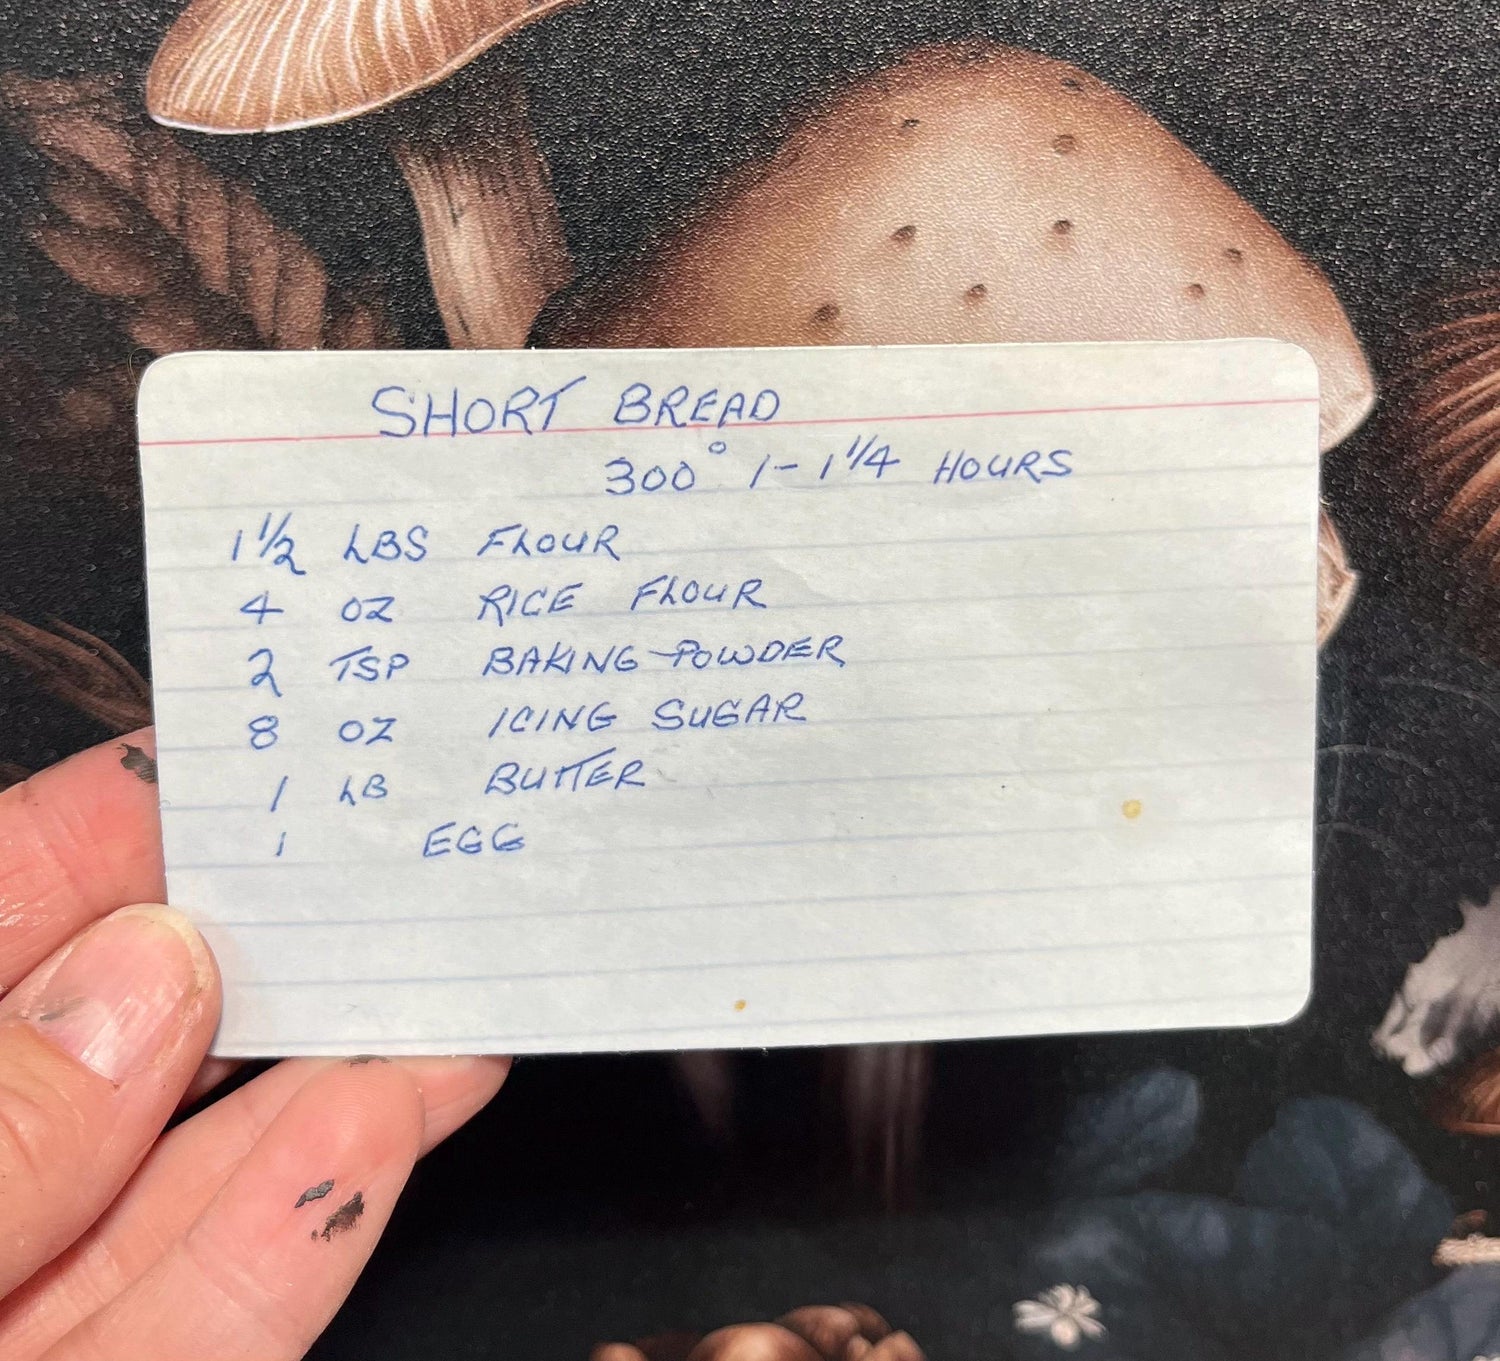 SHORT BREAD
300° 1- 1 1/4 HOURS
1 1/2 LBS FLOUR
4 OZ RICE FLOUR
2 TSP BAKING POWDER
8 OZ ICING SUGAR
1 LB BUTTER
1 EGG